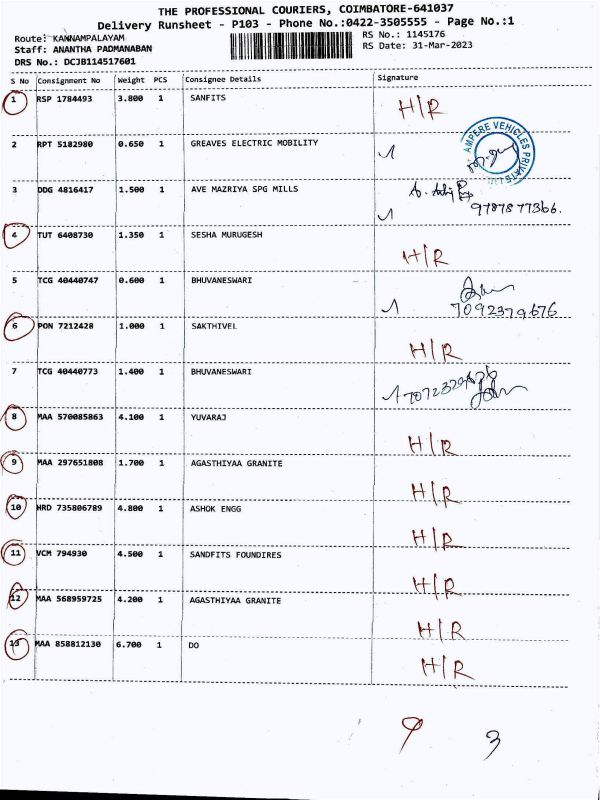 THE PROFESSIONAL COURIERS, COIMBATORE-641037
Delivery Runsheet - P103 - Phone No.:0422-3505555 - Page No.:1
Route: KANNAMPALAYAM
RS No.: 1145176
Staff: ANANTHA PADMANABAN
RS Date: 31-Mar-2023
DRS No.: DCJB114517601
S No Consignment No Weight PCS Consignee Details Signature
1 RSP 1784493 3.800 1 SANFITS H/R
2 RPT 5182980 0.650 1 GREAVES ELECTRIC MOBILITY
AMPERE VEHICLES PRIVATE
3 DDG 4816417 1.500 1 AVE MAZRIYA SPG MILLS
9787877366.
4 TUT 6408730 1.350 1 SESHA MURUGESH H/R
5 TCG 40440747 0.600 1 BHUVANESWARI
7092379676
6 PON 7212428 1.000 1 SAKTHIVEL H/R
7 TCG 40440773 1.400 1 BHUVANESWARI
8 MAA 570085863 4.100 1 YUVARAJ H/R
9 MAA 297651808 1.700 1 AGASTHIYAA GRANITE H/R
10 HRD 735806789 4.800 1 ASHOK ENGG H/R
11 VCM 794930 4.500 1 SANDFITS FOUNDIRES H/R
12 MAA 568959725 4.200 1 AGASTHIYAA GRANITE H/R
13 MAA 858812130 6.700 1 DO H/R
9 3